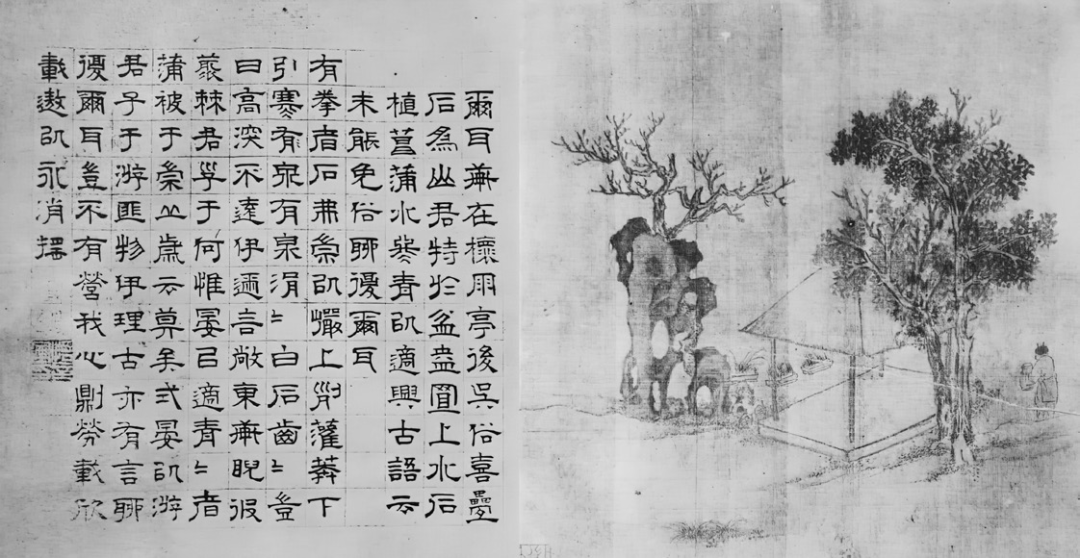 爾耳軒在槐雨亭後吳俗喜壘
石為山君特於盆盎置上水石
植菖蒲水冬青以適興古語云
未能免俗聊復爾耳
有拳者石弗崇以巖上列灌莽下
引寒有泉有泉涓〻白石齒〻豈
曰高深不遠伊邇言敞東軒睨彼
叢棘君子于何惟晏以適青〻者
蒲被于崇丘歲云莫矣式晏以游
君子于游匪物伊理古亦有言聊
復爾耳豈不有營我心則勞載欣
載遨以永消搖